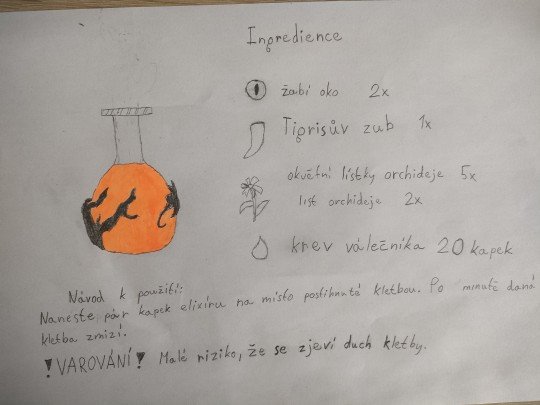 Ingredience
žabí oko 2x
Tigrisův zub 1x
okvětní lístky orchideje 5x
list orchideje 2x
krev válečníka 20 kapek
Návod k použití:
Naneste pár kapek elixíru na místo postihnuté kletbou. Po minutě daná
kletba zmizí.
!VAROVÁNÍ! Malé riziko, že se zjeví duch kletby.